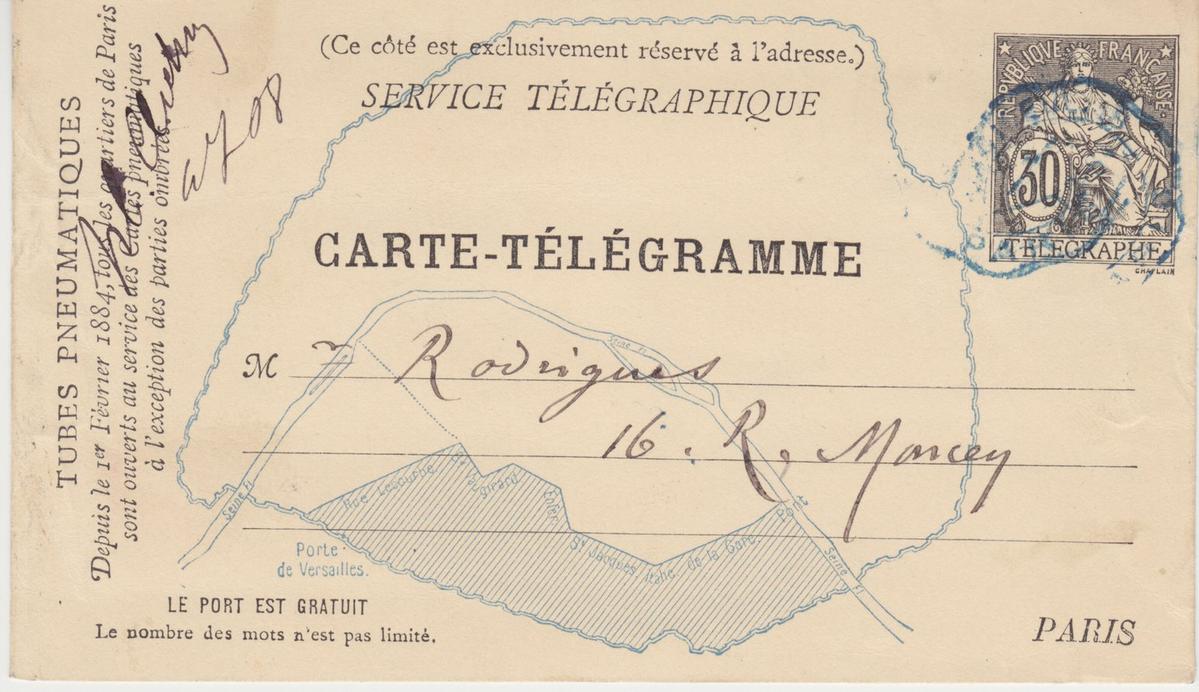 (Ce côté est exclusivement réservé à l'adresse.)
SERVICE TÉLÉGRAPHIQUE
RÉPUBLIQUE FRANÇAISE
30
TÉLÉGRAPHE
CHAPLAIN
TUBES PNEUMATIQUES
Depuis le 1er Février 1884, tous les quartiers de Paris
sont ouverts au service des Cartes pneumatiques
à l'exception des parties ombrées.
CARTE-TÉLÉGRAMME
Mr Rodrigues
16. R. Moncey
Seine Fl.
Seine Fl.
Seine Fl.
Rue Lecourbe.
Enfer
St Jacques. Italie. de la Gare.
Porte
de Versailles.
LE PORT EST GRATUIT
Le nombre des mots n'est pas limité.
PARIS